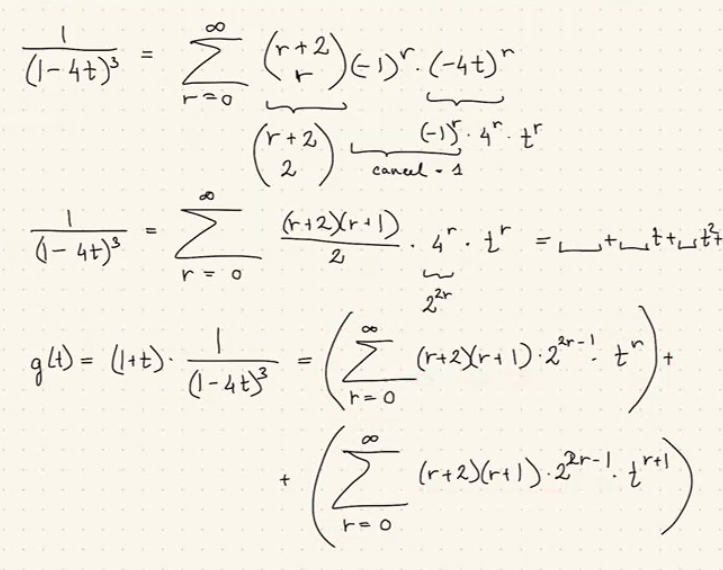 1/(1-4t)³ = ∑_{r=0}^{∞} (r+2 r) (-1)^r · (-4t)^r
(r+2 2) (-1)^r · 4^r · t^r
cancel = 1
1/(1-4t)³ = ∑_{r=0}^{∞} (r+2)(r+1)/2 · 4^r · t^r = __ + __ t + __ t² +
2^{2r}
g(t) = (1+t) · 1/(1-4t)³ = (∑_{r=0}^{∞} (r+2)(r+1) · 2^{2r-1} · t^r) +
+ (∑_{r=0}^{∞} (r+2)(r+1) · 2^{2r-1} · t^{r+1})